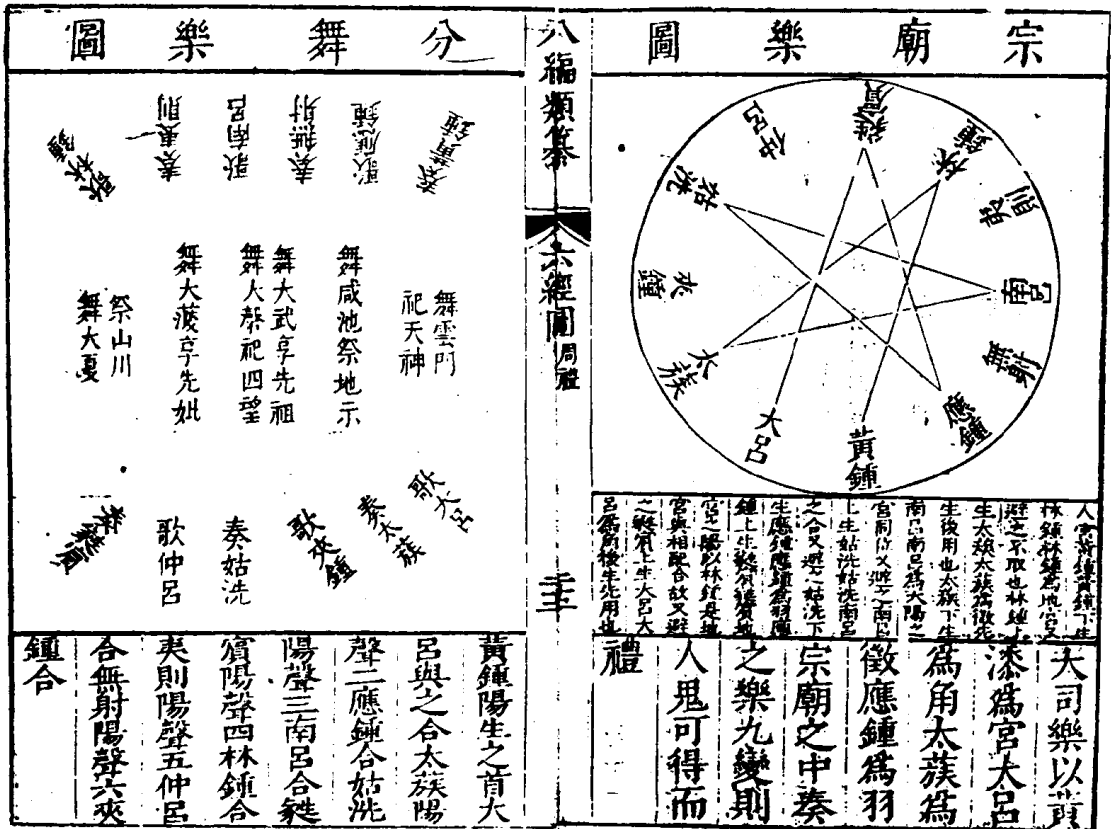 宗廟樂圖
蕤賓
林鍾
夷則
南呂
無射
應鍾
黃鍾
大呂
太蔟
夾鍾
姑洗
仲呂
人宮黃鍾黃鍾下生
林鍾林鍾為地宮又
避之不取也林鍾上
生太蔟太蔟為徵先
生後用也太蔟下生
南呂南呂為
宮同位又避之南呂
上生姑洗姑洗南呂
之合又避之姑洗下
生應鍾應鍾為羽應
鍾上生蕤賓蕤賓地
宮之陽以林鍾是地
宮與相配合故又避
之蕤賓上生大呂大
呂為角後生先用也
大司樂以黃
漆為宮大呂
為角太蔟為
徵應鍾為羽
宗廟之中奏
之樂九變則
人鬼可得而
禮
八編類纂
六經圖
周禮
三三
分舞樂圖
奏黃鍾
歌應鍾
奏無射
歌南呂
奏夷則
歌林鍾
舞雲門
祀天神
舞咸池祭地示
舞大武享先祖
舞大磬祀四望
舞大濩享先妣
祭山川
舞大夏
歌大呂
奏太蔟
歌夾鍾
奏姑洗
歌仲呂
奏蕤賓
黃鍾陽生之首大
呂與之合太蔟陽
聲二應鍾合姑洗
陽聲三南呂合蕤
賓陽聲四林鍾合
夷則陽聲五仲呂
合無射陽聲六夾
鍾合